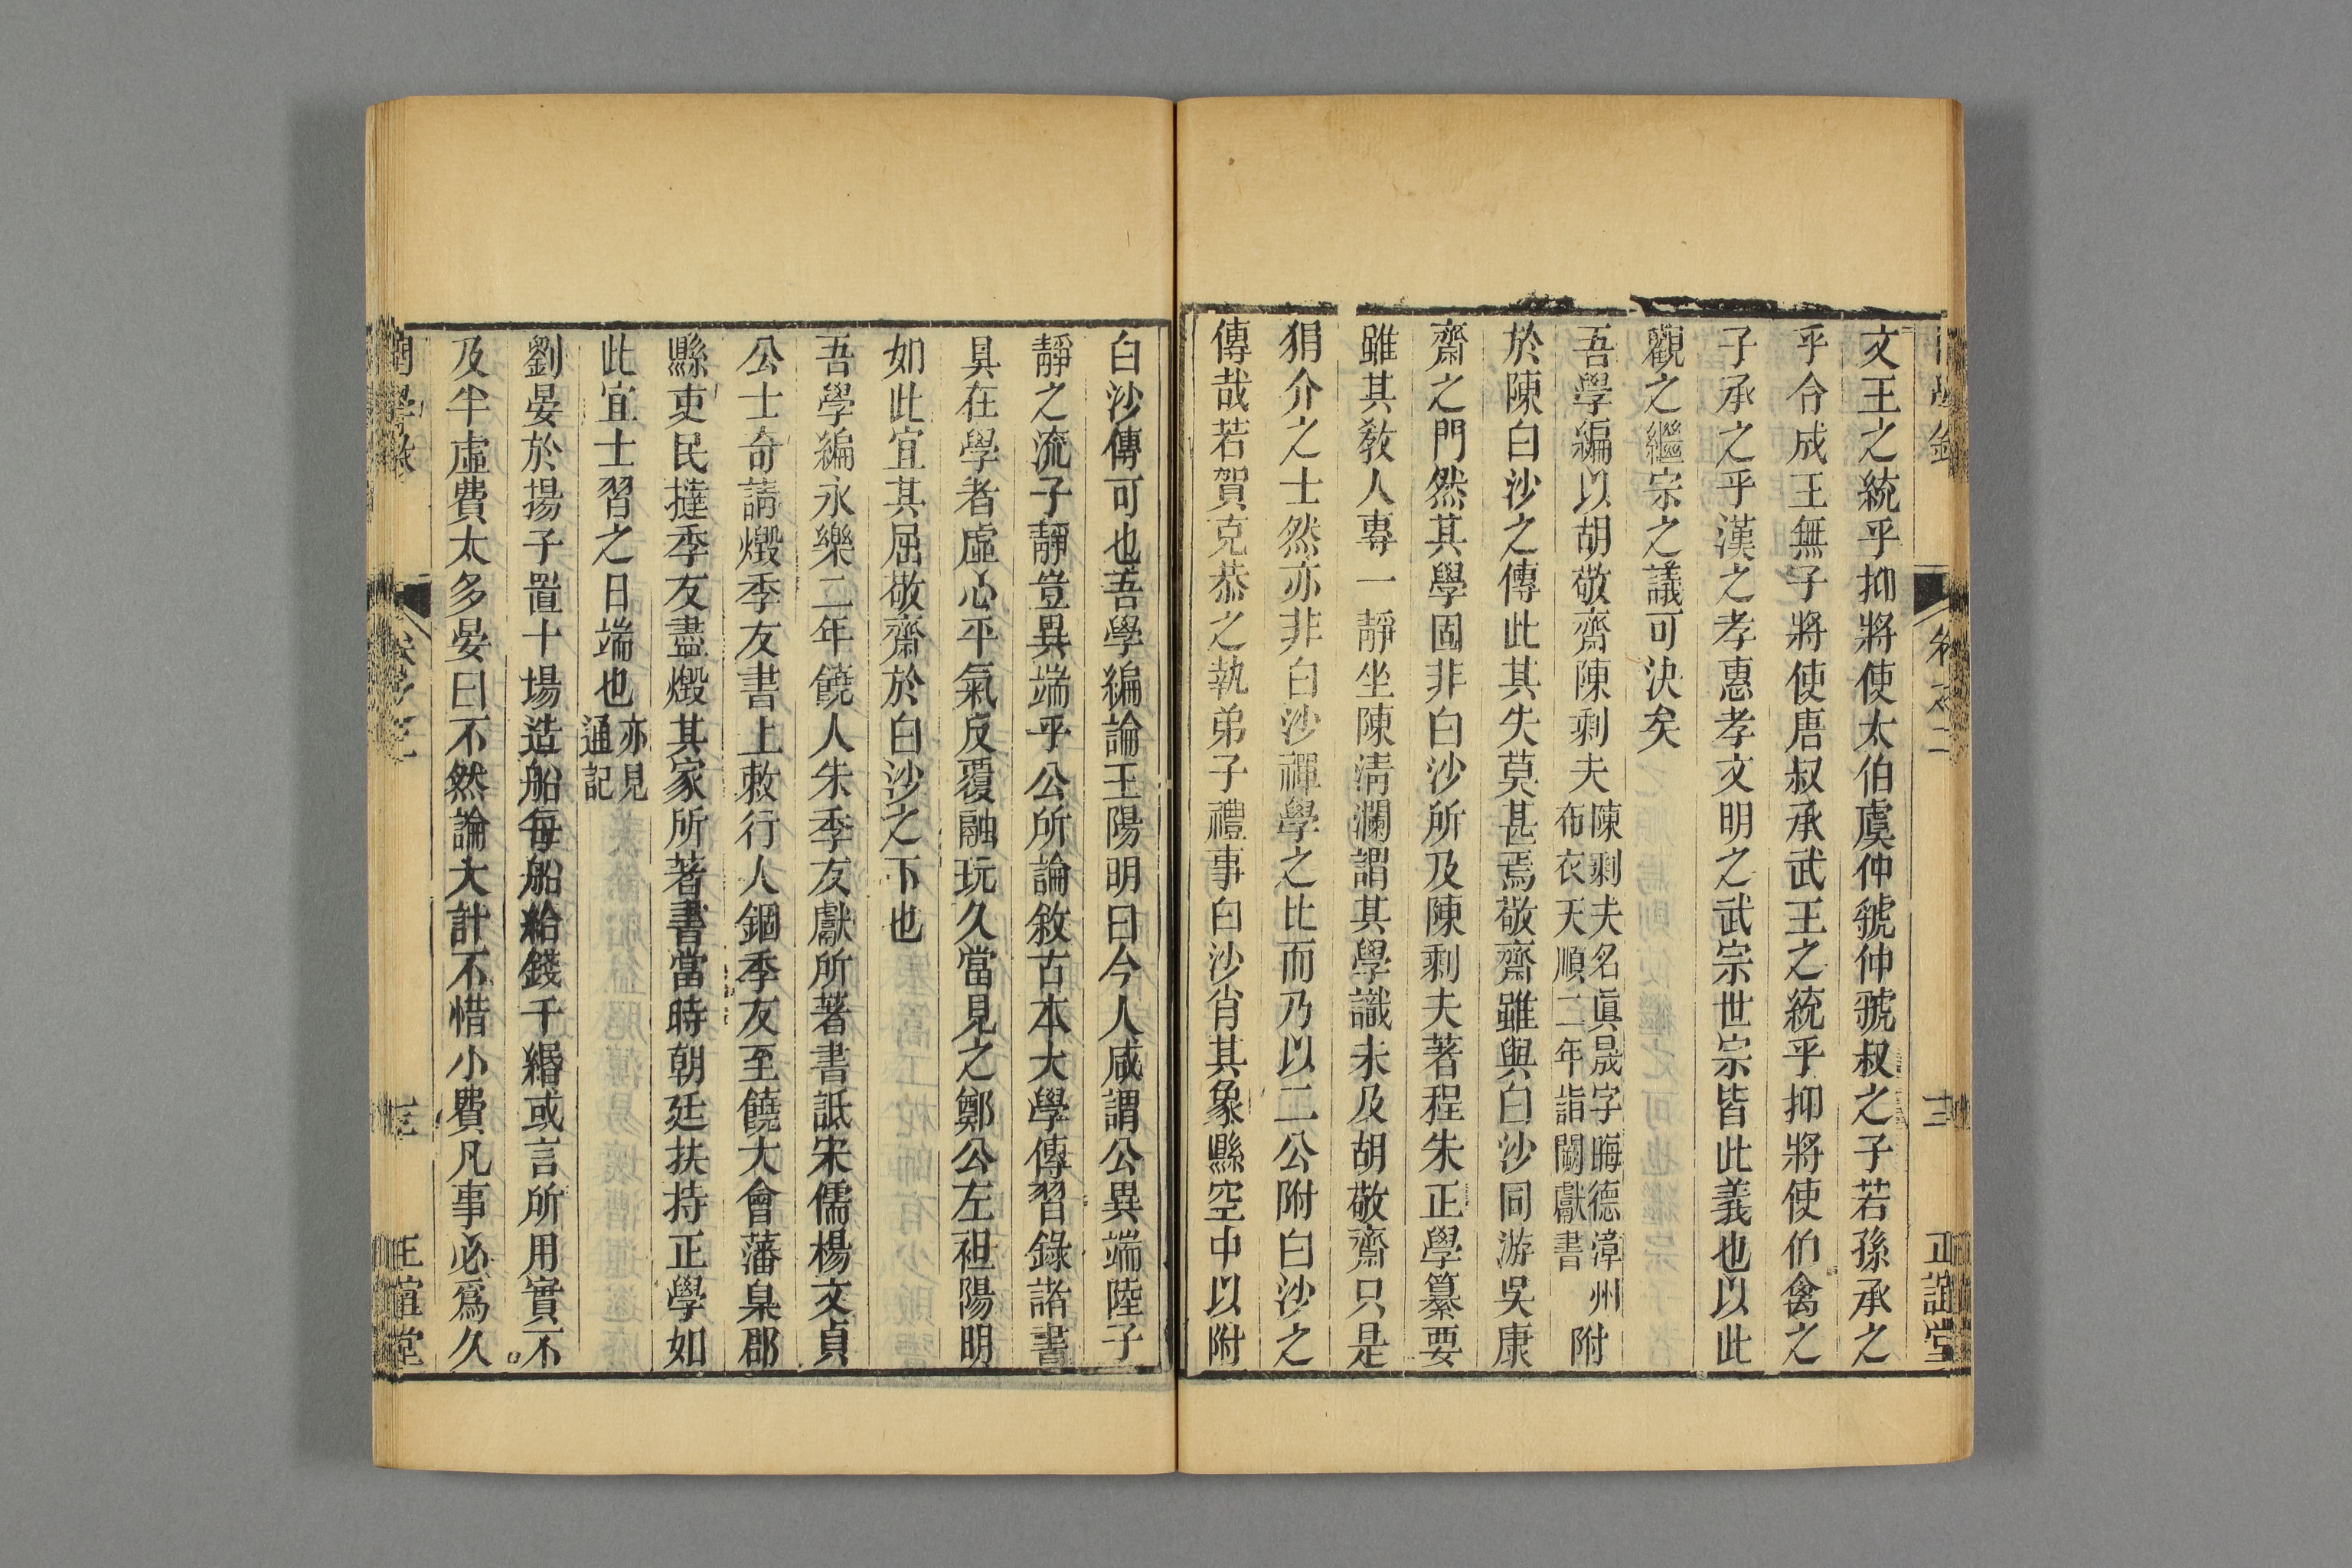 文王之統乎抑將使太伯虞仲虢仲虢叔之子若孫承之
乎合成王無子將使唐叔承武王之統乎抑將使伯禽之
子承之乎漢之孝惠孝文明之武宗世宗皆此義也以此
觀之繼宗之議可決矣
吾學編以胡敬齋陳剩夫陳剩夫名眞晟字晦德漳州布衣天順二年詣闕獻書附
於陳白沙之傳此其失莫甚焉敬齋雖與白沙同游吳康
齋之門然其學固非白沙所及陳剩夫著程朱正學纂要
雖其敎人專一靜坐陳淸瀾謂其學識未及胡敬齋只是
狷介之士然亦非白沙禪學之比而乃以二公附白沙之
傳哉若賀克恭之執弟子禮事白沙肖其象縣空中以附
白沙傳可也吾學編論王陽明曰今人咸謂公異端陸子
靜之流子靜豈異端乎公所論敘古本大學傳習錄諸書
具在學者虛心平氣反覆融玩久當見之鄭公左袒陽明
如此宜其屈敬齋於白沙之下也
吾學編永樂二年饒人朱季友獻所著書詆宋儒楊文貞
公士奇請燬季友書上敕行人錮季友至饒大會藩臬郡
縣吏民撻季友盡燬其家所著書當時朝廷扶持正學如
此宜士習之日端也亦見通記
劉晏於揚子置十場造船每船給錢千緡或言所用實不
及半虛費太多晏曰不然論大計不惜小費凡事必爲久
卷之二
正誼堂